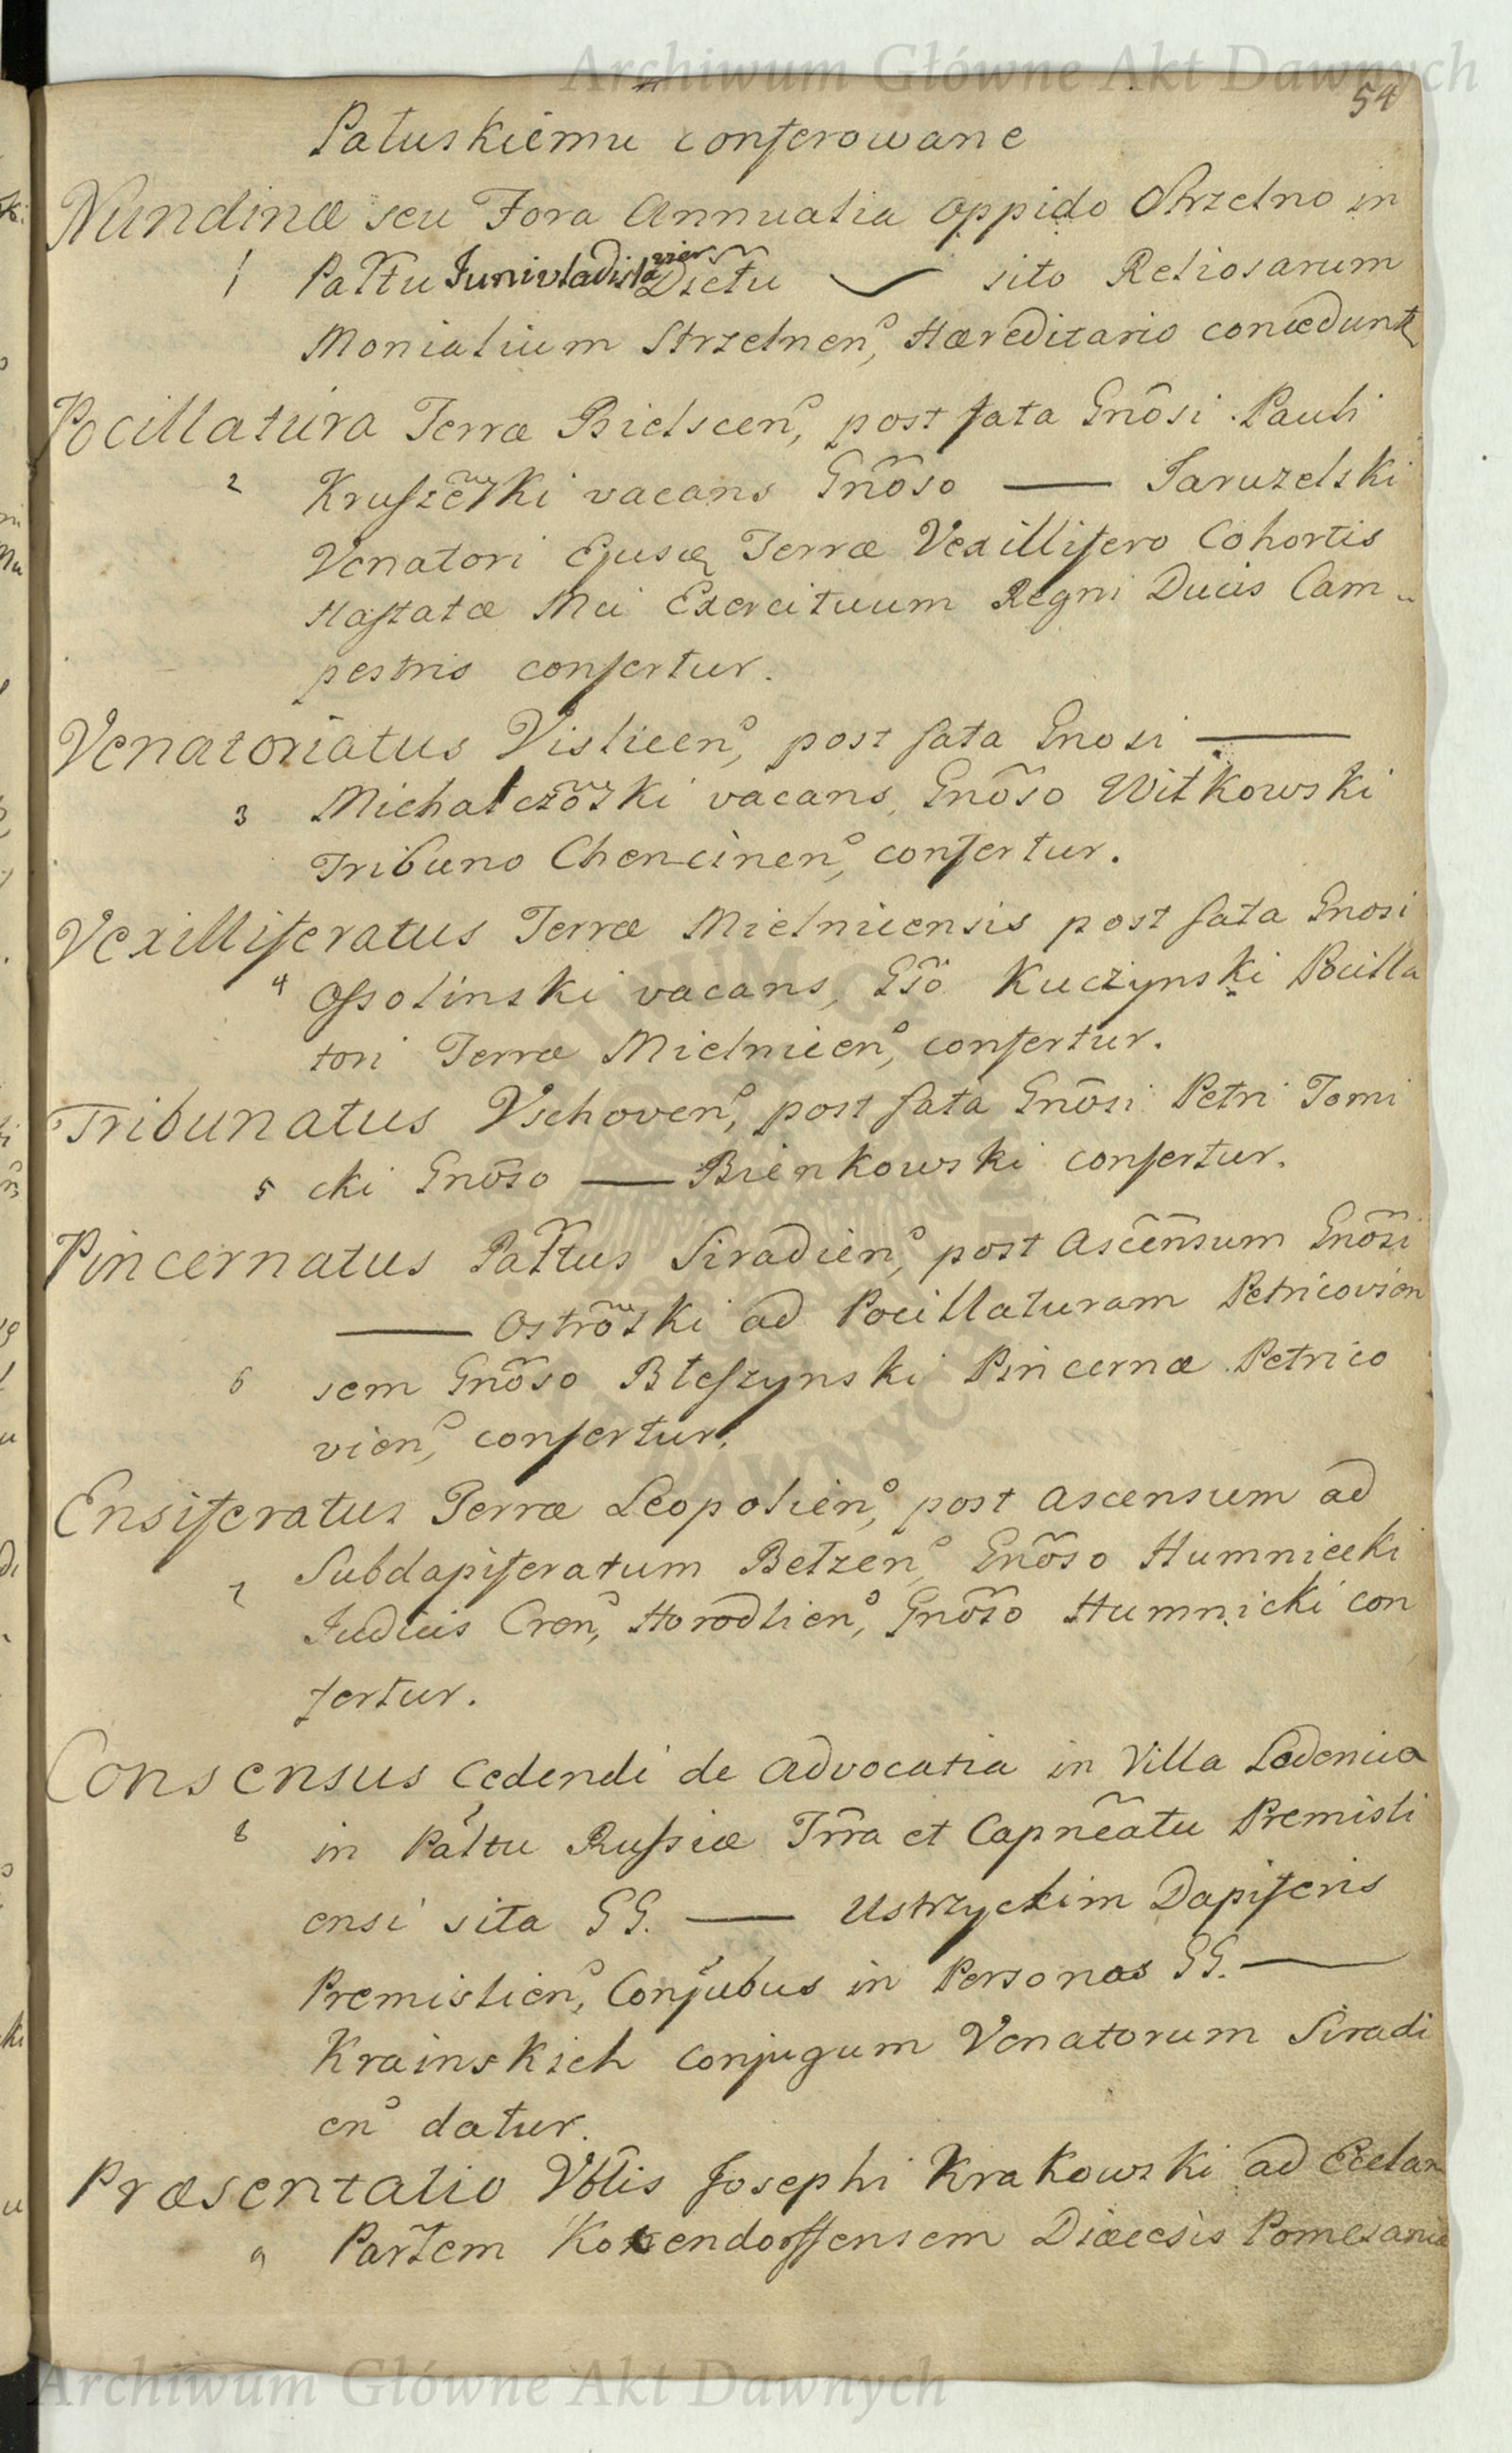 Archiwum Główne Akt Dawnych
54
Patuskiemu conferowane
Nundinæ seu Fora Annualia Oppido Strzelno in
1 Palttu Junivladislavien Dictu sito Reliosarum
Monialium Strzelnen, Hæreditario conceduntr
Pocillatura Terræ Bielscen, post fata Gnosi Pauli
2 Kruszewski vacans Gnoso — Jaruzelski
Venatori Ejusq Terræ Vexillifero Cohortis
Hastatæ Mci Exercituum Regni Ducis Cam
pestris confertur.
Venatoriatus Vislicen, post fata Gnosi —
3 Michałczowski vacans, Gnoso Witkowski
Tribuno Chencinen, confertur.
Vexilliferatus Terræ Mielnicensis post fata Gnosi
4 Ossolinski vacans, Gso Kuczynski Pocilla
tori Terræ Mielnicen, confertur.
Tribunatus Vschoven, post fata Gnosi Petri Tomi
5 cki Gnoso — Bienkowski confertur.
Pincernatus Palttus Siradien, post Ascensum Gnosi
— Ostrowski ad Pocillaturam Petricovien
6 sem Gnoso Bleszynski Pincernæ Petrico
vien, confertur.
Ensiferatus Terræ Leopolien, post ascensum ad
7 Subdapiferatum Belzen, Gnoso Humniecki
Judicis Cren, Horodlien, Gnoso Humnicki con
fertur.
Consensus cedendi de Advocatia in Villa Ladenica
8 in Palttu Russiæ Trra et Capneatu Premisli
ensi sita GG. — Ustrzyckim Dapiferis
Premislien, Conjubus in Personas GG. —
Krainskich conjugum Venatorum Siradi
en datur.
Præsentatio Vblis Josephi Krakowski ad Ecclam
9 Partem Kokendorffensem Diæcesis Pomesaniæ
Archiwum Główne Akt Dawnych